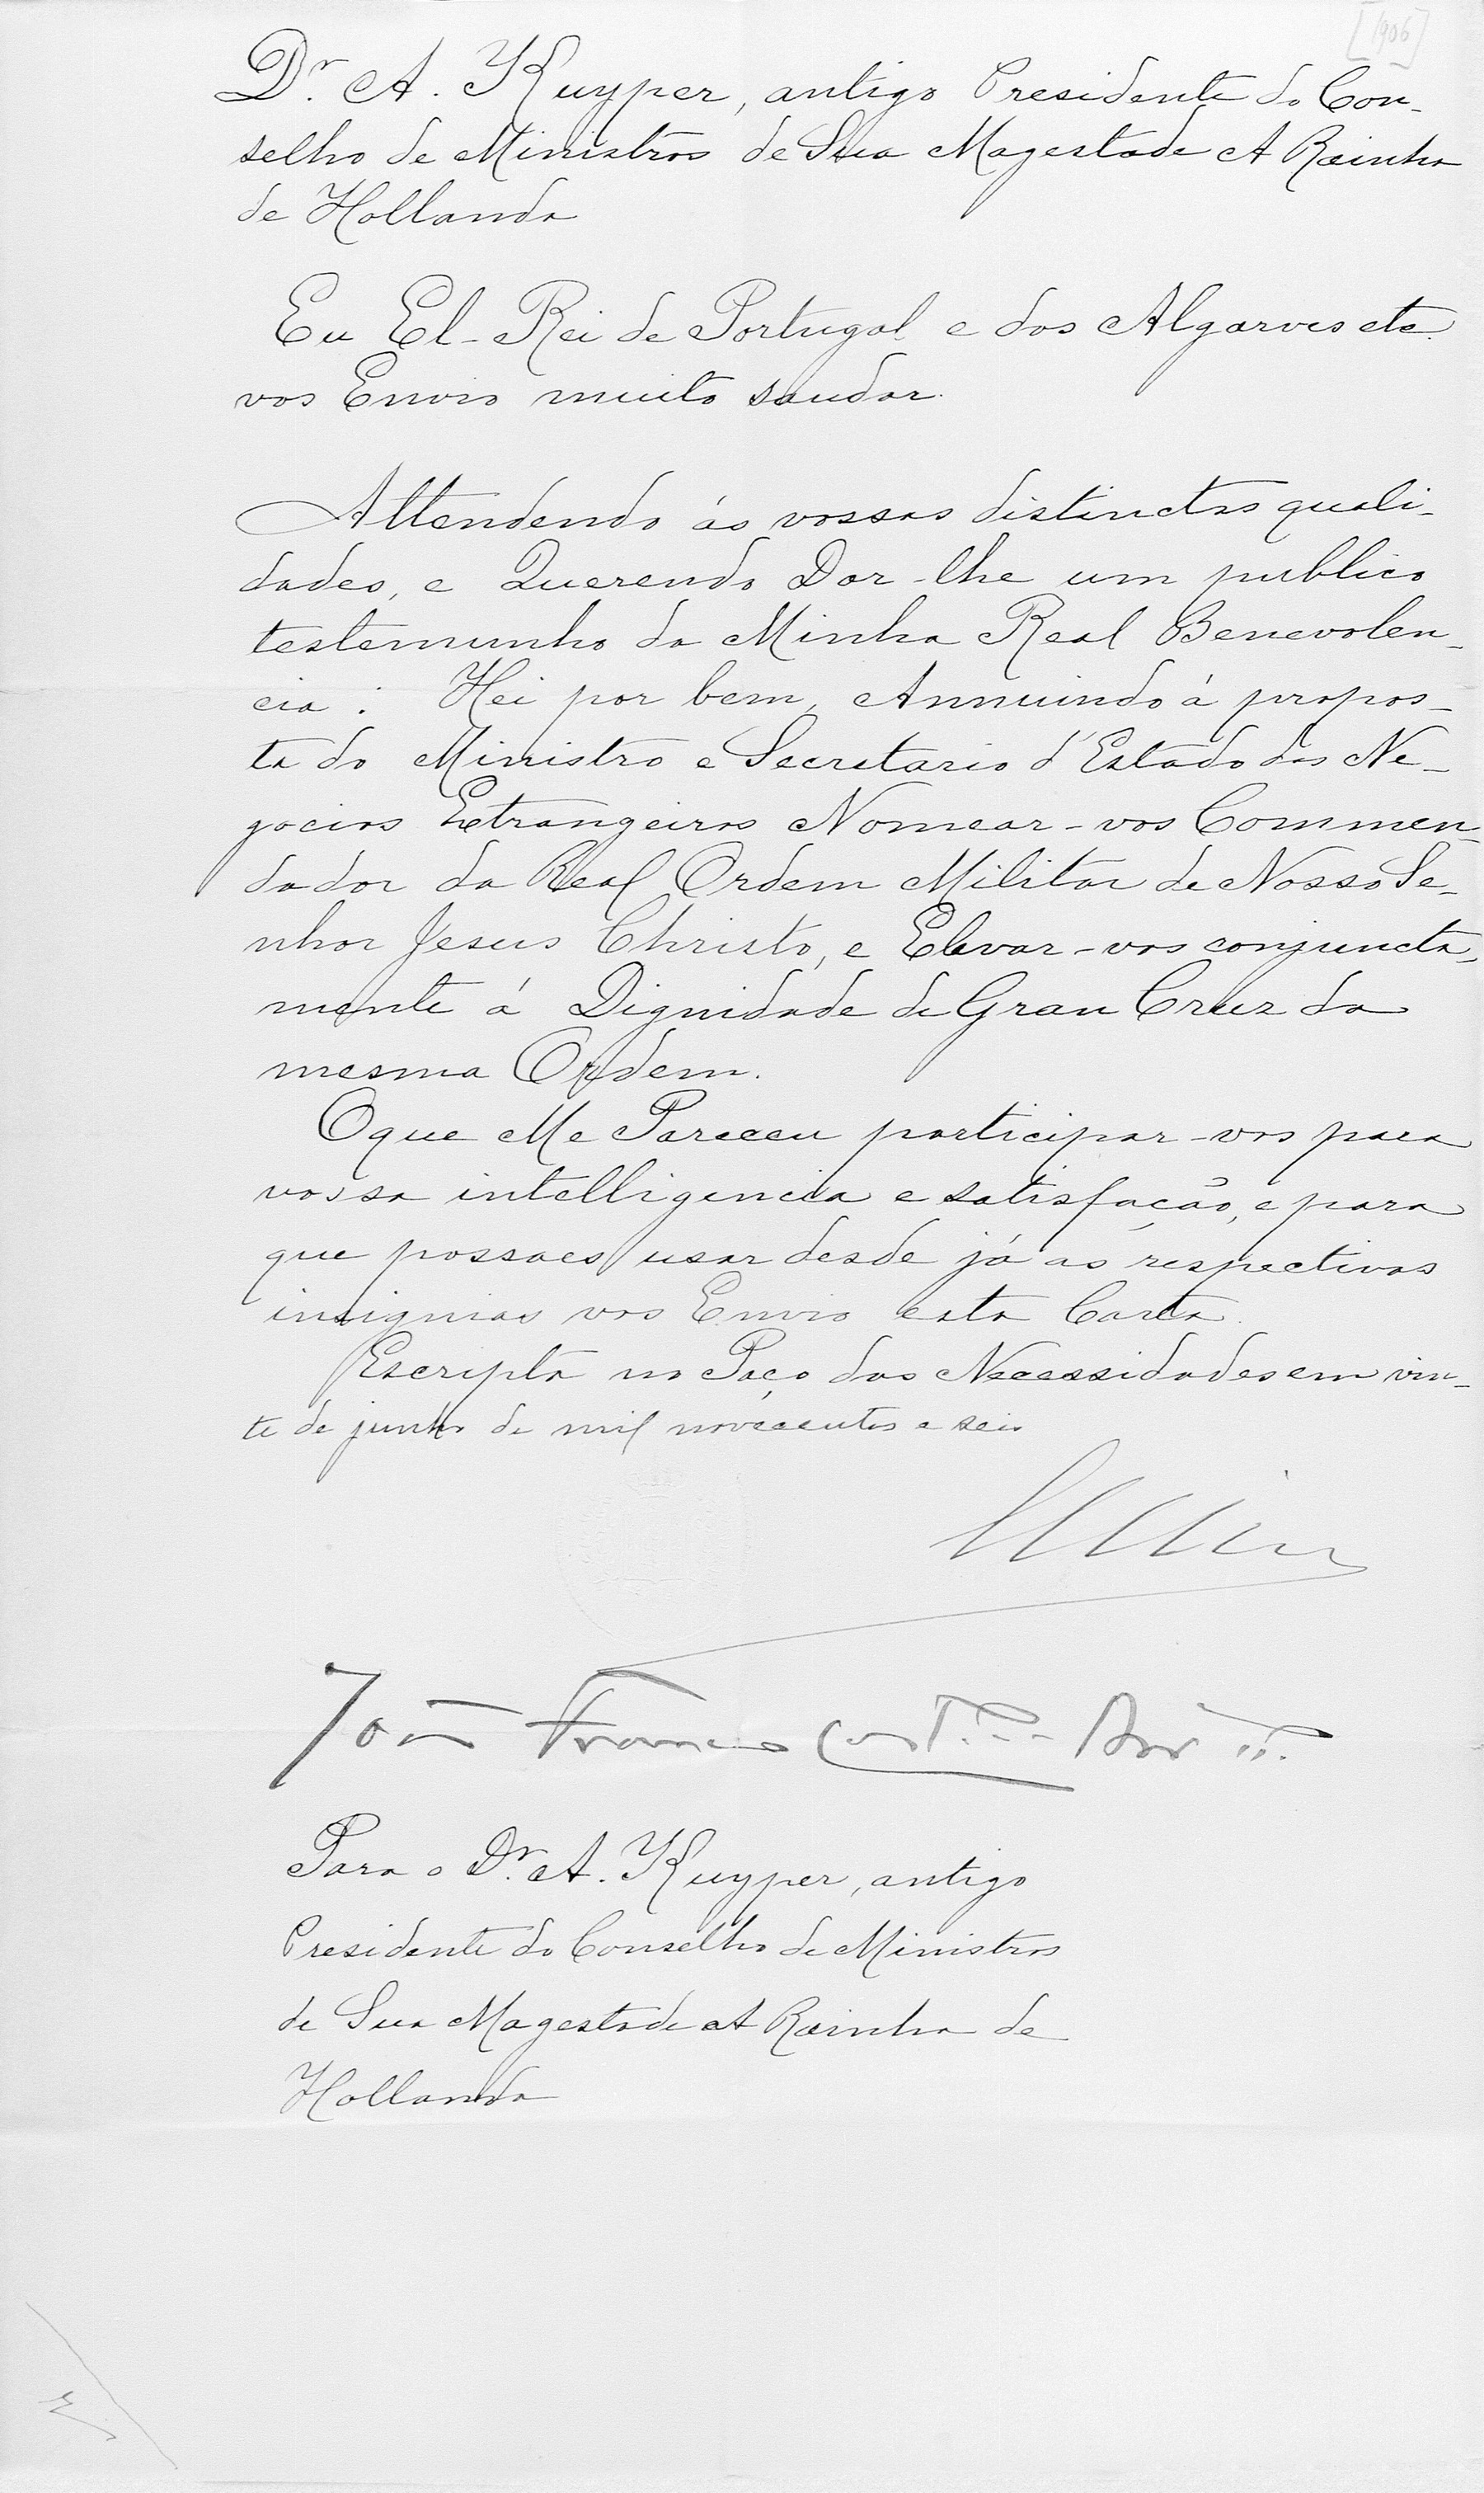 [1906]
Dr. A. Kuyper, antigo Presidente do Con-
selho de Ministros de Sua Magestade A Rainha
de Hollanda
Eu El-Rei de Portugal e dos Algarves etc.
vos Envio muito saudar.
Attendendo ás vossas distinctas quali-
dades, e Querendo Dar-lhe um publico
testemunho da Minha Real Benevolen-
cia: Hei por bem, Annuindo á propos-
ta do Ministro e Secretario d'Estado dos Ne-
gocios Estrangeiros Nomear-vos Commen-
dador da Real Ordem Militar de Nosso Se-
nhor Jesus Christo, e Elevar-vos conjuncta-
mente á Dignidade de Gran Cruz da
mesma Ordem.
O que Me Pareceu participar-vos para
vossa intelligencia e satisfação, e para
que possaes usar desde já as respectivas
insignias vos Envio esta Carta.
Escripta no Paço das Necessidades em vin-
te de junho de mil novecentos e seis
João Franco
Para o Dr. A. Kuyper, antigo
Presidente do Conselho de Ministros
de Sua Magestade A Rainha de
Hollanda